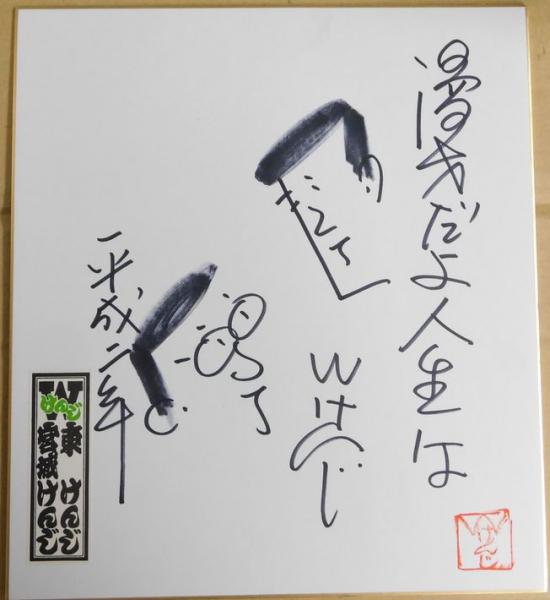 漫才だよ人生は
Wけんじ
平成二年
W
けんじ
東 けんじ
宮城けんじ
けんじ